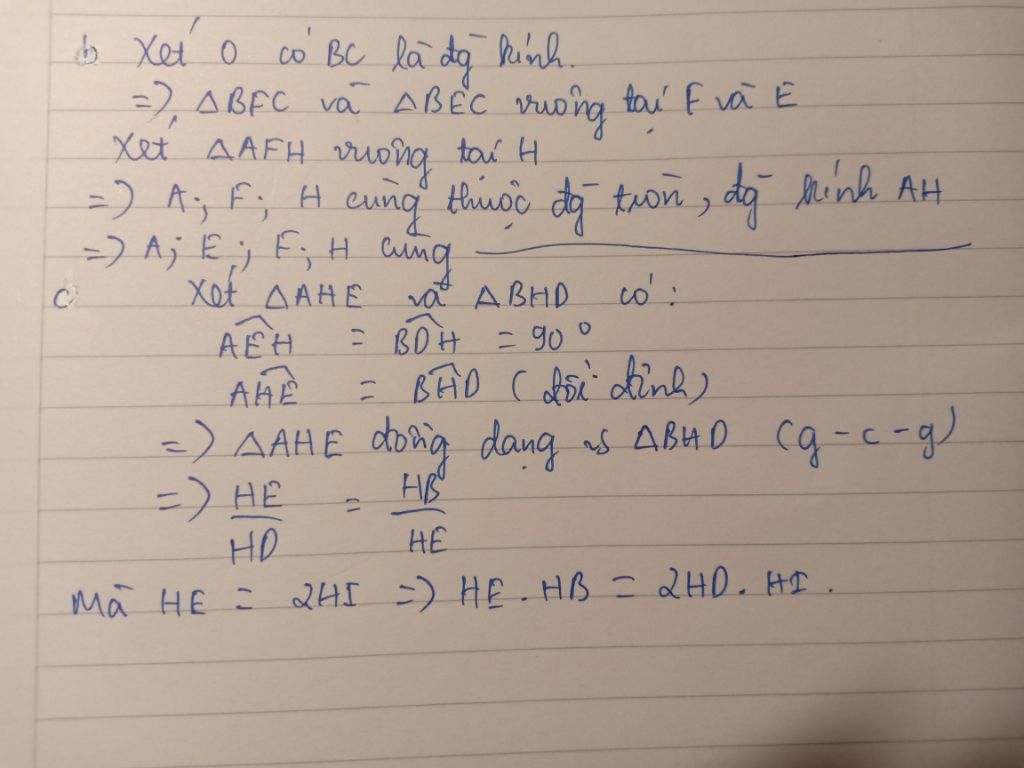 b Xét O có BC là đg kính.
=> △BFC và △BEC vuông tại F và E
Xét △AFH vuông tại H
=> A; F; H cùng thuộc đg tròn, đg kính AH
=> A; E; F; H cùng
c Xét △AHE và △BHD có:
AEH = BDH = 90°
AHE = BHD (đối đỉnh)
=> △AHE đồng dạng vs △BHD (g-c-g)
=> HE/HD = HB/HE
Mà HE = 2HI => HE.HB = 2HD.HI.